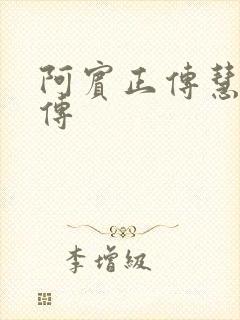 阿賓正傳慧
傳
李增級